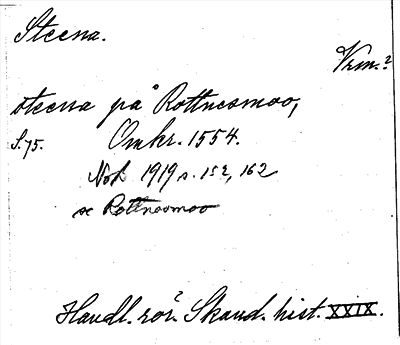 Steena.
Vrm.?
steena på Rottnesmoo,
S. 75. Omkr. 1554.
NoB 1919 s. 152, 162
se Rottnosmoo
Handl. rör. Skand. hist. XXIX.